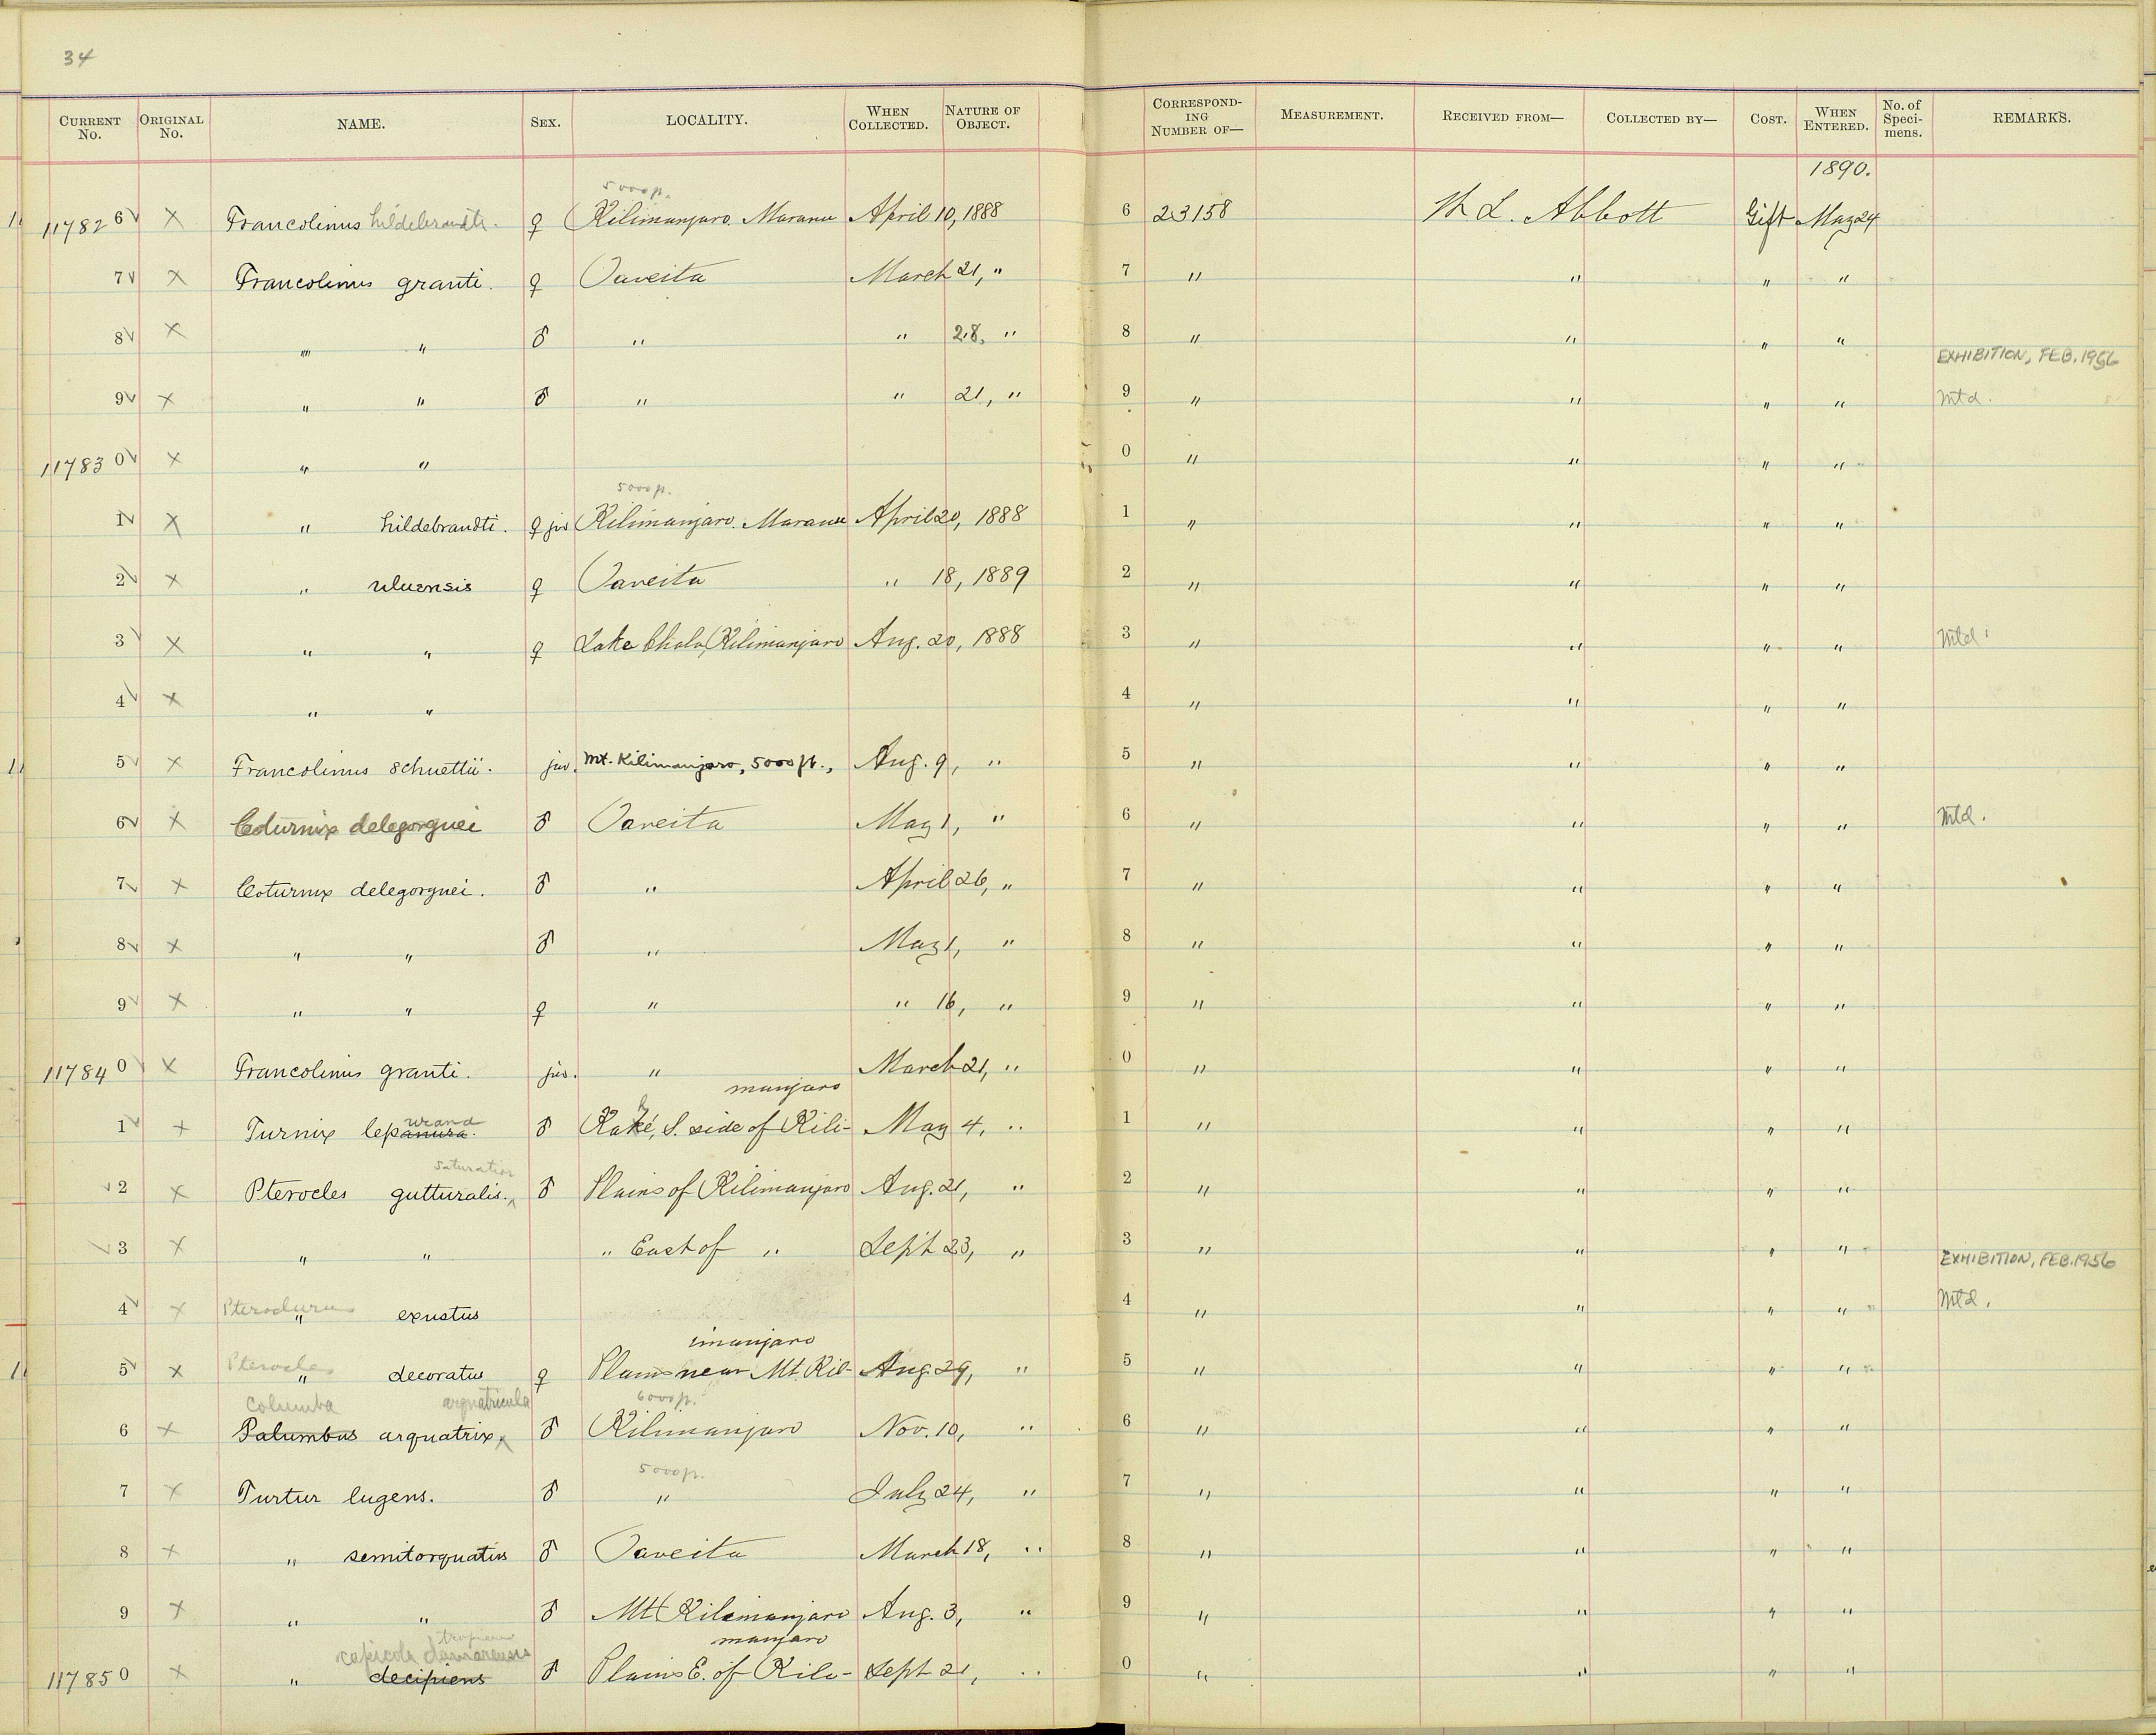 34
CURRENT No. ORIGINAL No. NAME. SEX. LOCALITY. WHEN COLLECTED. NATURE OF OBJECT. CORRESPONDING NUMBER OF— MEASUREMENT. RECEIVED FROM— COLLECTED BY— COST. WHEN ENTERED. No. of Specimens. REMARKS.
1890.
5000 ft.
117826 ✓ × Francolinus hildebrandti. ♀ Kilimanjaro. Maranu April 10, 1888 6 23158 W. L. Abbott Gift May 24
7 ✓ × Francolinus granti. ♀ Taveita March 21, " 7 " " " "
8 ✓ × " " ♂ " " 28, " 8 " " " "
EXHIBITION, FEB. 1956
9 ✓ × " " ♂ " " 21, " 9 " " " " Mtd.
117830 ✓ × " " 0 " " " "
5000 ft.
1 ✓ × " hildebrandti. ♀ juv Kilimanjaro. Maranu April 20, 1888 1 " " " "
2 ✓ × " uluensis ♀ Taveita " 18, 1889 2 " " " "
3 ✓ × " " ♀ Lake Chala, Kilimanjaro Aug. 20, 1888 3 " " " " Mtd.
4 ✓ × " " 4 " " " "
5 ✓ × Francolinus schuettii. juv. Mt. Kilimanjaro, 5000 ft., Aug. 9, " 5 " " " "
6 ✓ × Coturnix delegorguei ♂ Taveita May 1, " 6 " " " " Mtd.
7 ✓ × Coturnix delegorguei. ♂ " April 26, " 7 " " " "
8 ✓ × " " ♂ " May 1, " 8 " " " "
9 ✓ × " " ♀ " " 16, " 9 " " " "
117840 ✓ × Francolinus granti. juv. " March 21, " 0 " " " "
urana manjaro
1 ✓ × Turnix lepanura. ♂ Kahé, S. side of Kili- May 4, " 1 " " " "
saturatior
✓ 2 × Pterocles gutturalis. ♂ Plains of Kilimanjaro Aug. 21, " 2 " " " "
✓ 3 × " " " East of " Sept 23, " 3 " " " "
EXHIBITION, FEB. 1956
4 ✓ × Pteroclurus " exustus 4 " " " " Mtd.
imanjaro
5 ✓ × Pterocles " decoratus ♀ Plains near Mt. Kil- Aug. 29, " 5 " " " "
Columba arquatricula 6000 ft.
6 × Palumbus arquatrix ♂ Kilimanjaro Nov. 10, " 6 " " " "
5000 ft.
7 × Turtur lugens. ♂ " July 24, " 7 " " " "
8 × " semitorquatus ♂ Taveita March 18, " 8 " " " "
9 × " " ♂ Mt Kilimanjaro Aug. 3, " 9 " " " "
tropica manjaro
capicola damarensis
117850 × " decipiens ♂ Plains E. of Kili- Sept 21, " 0 " " " "